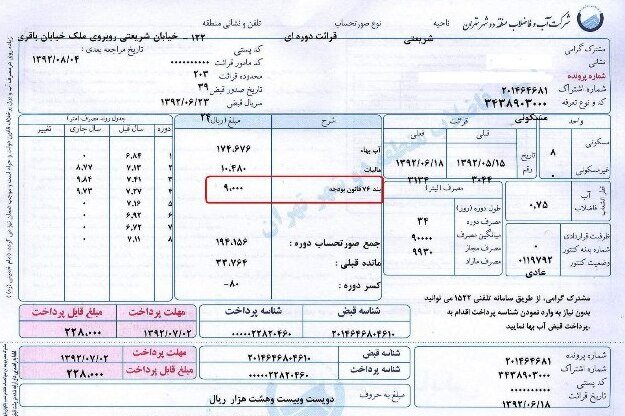 شرکت آب و فاضلاب منطقه دو شهر تهران
ناحیه
نوع صورتحساب
تلفن و نشانی منطقه
شریعتی
قرائت دوره ای
۱۲۲- خیابان شریعتی روبروی ملک خیابان باقری
مشترک گرامی
نشانی
شماره پرونده
شماره اشتراک
۲۰۱۴۶۴۶۸۱
کد و نوع تعرفه
۳۴۳۸۹۰۳۰۰۰
مسکونی
کد پستی
کد مامور قرائت
۰۰۰۰۰۰۰۰۰۰
دوره قرائت
۲۰۳
تاریخ صدور قبض
۳۹
سریال قبض
۱۳۹۲/۰۶/۲۳
۲۴
تاریخ مراجعه بعدی :
۱۳۹۲/۰۸/۰۴
واحد
مسکونی
۸
غیرمسکونی
۰
قرائت
قبلی
فعلی
تاریخ
۱۳۹۲/۰۵/۱۵
۱۳۹۲/۰۶/۱۸
رقم
۳۰۴۴
۳۱۳۴
آب
۰,۷۵
مصرف (لیتر)
طول دوره (روز)
۳۴
مصرف دوره
۹۰۰۰۰
میانگین مصرف
۹۹۳۰
مصرف مازاد
ظرفیت قراردادی
۰
شماره بدنه کنتور
۰۱۱۹۷۹۲
وضعیت کنتور
عادی
شرح
مبلغ (ریال)
آب بهاء
۱۷۴.۶۷۶
مالیات
۱۰.۴۸۰
بند ۷۶ قانون بودجه
۹.۰۰۰
جمع صورتحساب دوره :
۱۹۴.۱۵۶
مانده قبلی :
۳۳.۷۶۴
کسر دوره :
-۸۰
جدول روند مصرف (متر)
دوره
سال قبل
سال جاری
تغییر
۱
۶.۸۴
۰
۲
۷.۱۳
۸.۷۷
۳
۷.۴۱
۹.۸۴
۴
۷.۳۷
۹.۷۳
۵
۷.۱۶
۰
۶
۶.۹۲
۰
۷
۶.۷۲
۰
۸
۷.۱۱
۰
مشترک گرامی، از طریق سامانه تلفنی ۱۵۲۲ می توانید
بدون نیاز به وارد نمودن شناسه پرداخت اقدام به
پرداخت قبض آب بها نمایید.
شناسه قبض
شناسه پرداخت
مهلت پرداخت
مبلغ قابل پرداخت
۲۰۱۴۶۴۶۸۰۴۶۱۰
۰۰۰۰۰۲۲۸۲۰۴۶۰
۱۳۹۲/۰۷/۰۲
۲۲۸.۰۰۰
شماره پرونده
شماره اشتراک
۲۰۱۴۶۴۶۸۱
۳۴۳۸۹۰۳۰۰۰
۱۳۹۲/۰۶/۱۸
شناسه قبض
۲۰۱۴۶۴۶۸۰۴۶۱۰
شناسه پرداخت
۰۰۰۰۰۲۲۸۲۰۴۶۰
مهلت پرداخت
۱۳۹۲/۰۷/۰۲
مبلغ قابل پرداخت
۲۲۸.۰۰۰
مبلغ به حروف
دویست وبیست وهشت هزار ریال